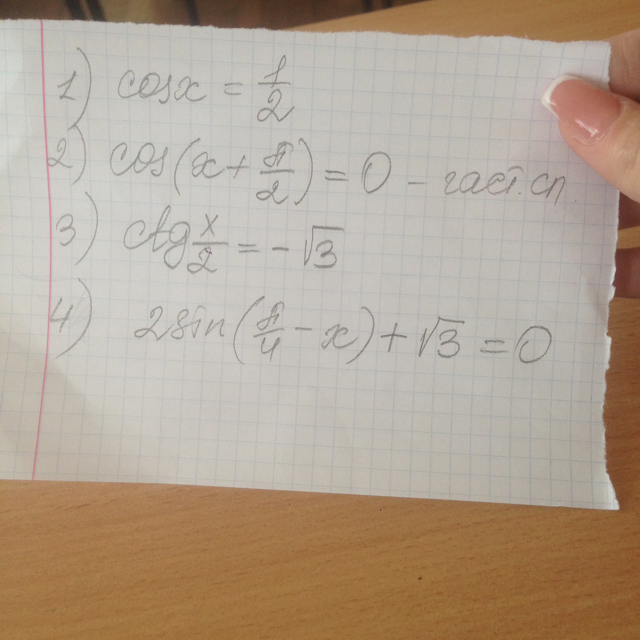 1) cosx = 1/2
2) cos(x + π/2) = 0 - част.сл.
3) ctg x/2 = -√3
4) 2sin(π/4 - x) + √3 = 0